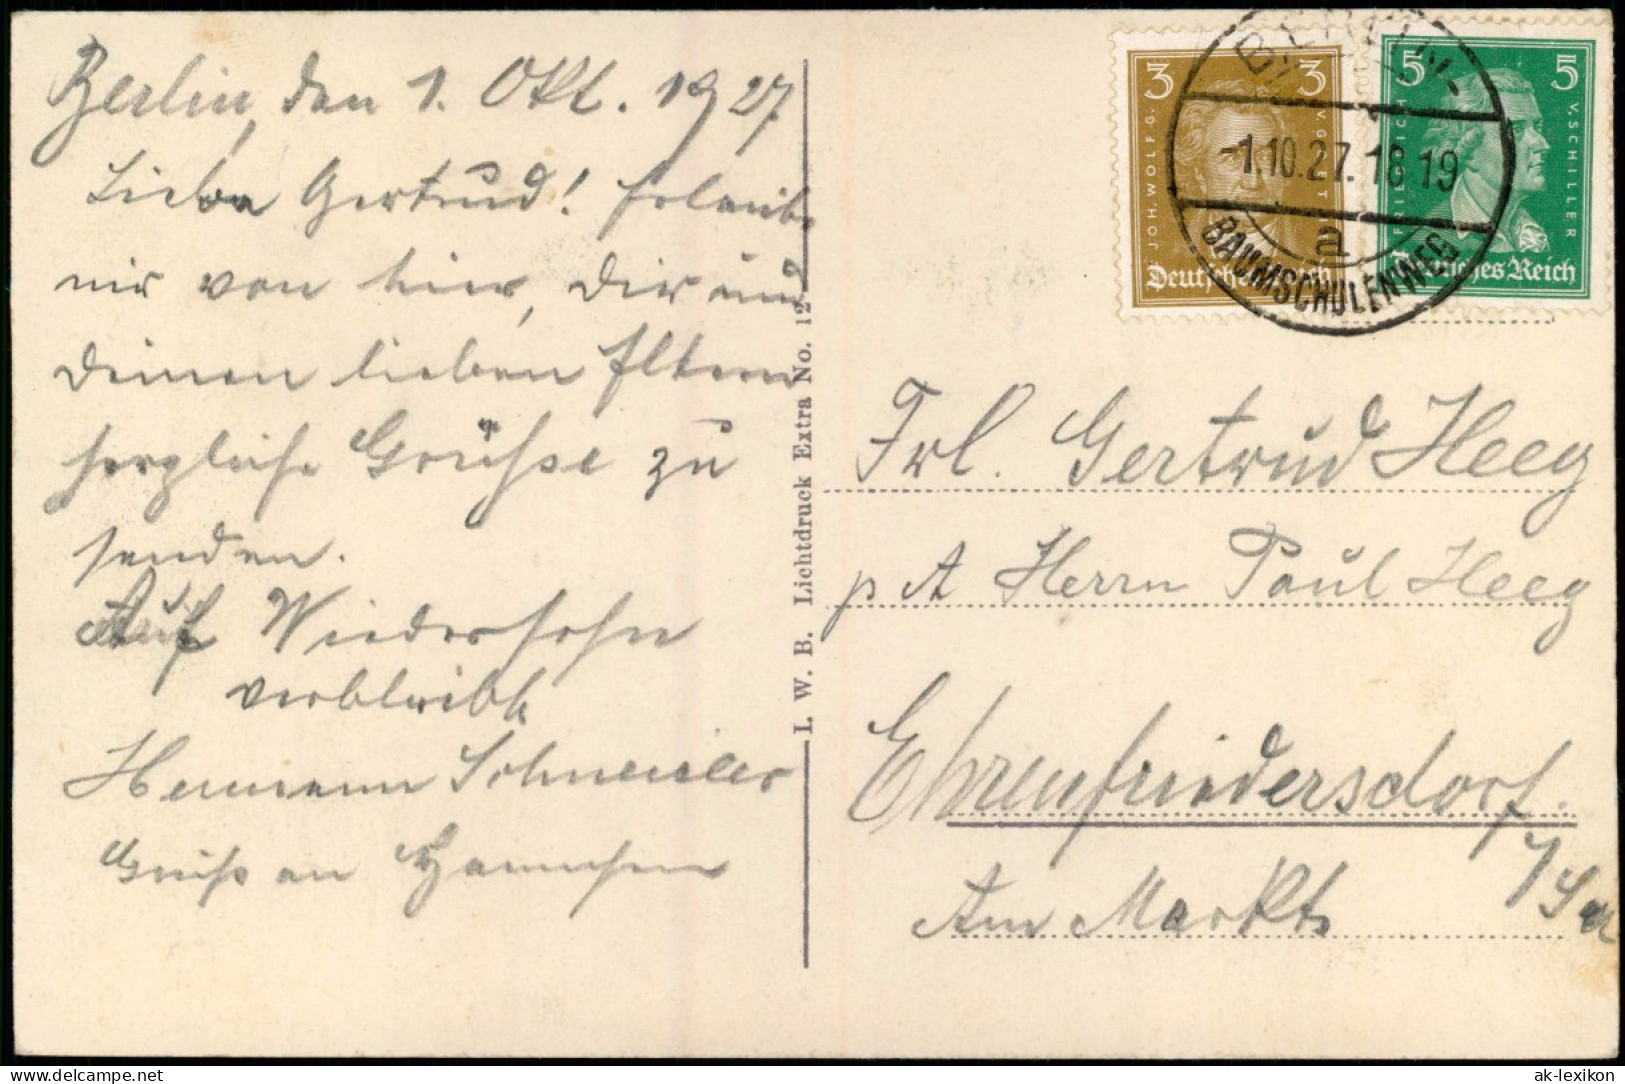 Berlin, den 1. Okt. 1927.
Liebe Gertrud! Erlaube
mir von hier, Dir und
Deinen lieben Eltern
herzliche Grüße zu
senden.
Auf Wiedersehn
verbleibt
Hermann Schneider
Gruß an
I. W. B. Lichtdruck Extra No. 12
3 3
JOH. WOLFG. V. GOETHE
Deutsches Reich
5 5
FRIEDRICH V. SCHILLER
Deutsches Reich
BERLIN
-1.10.27. 18-19
a
BAUMSCHULENWEG
Frl. Gertrud Heeg
p A Herrn Paul Heeg
Ehrenfriedersdorf.
i/Sa
Am Markt
www.delcampe.net
ak-lexikon